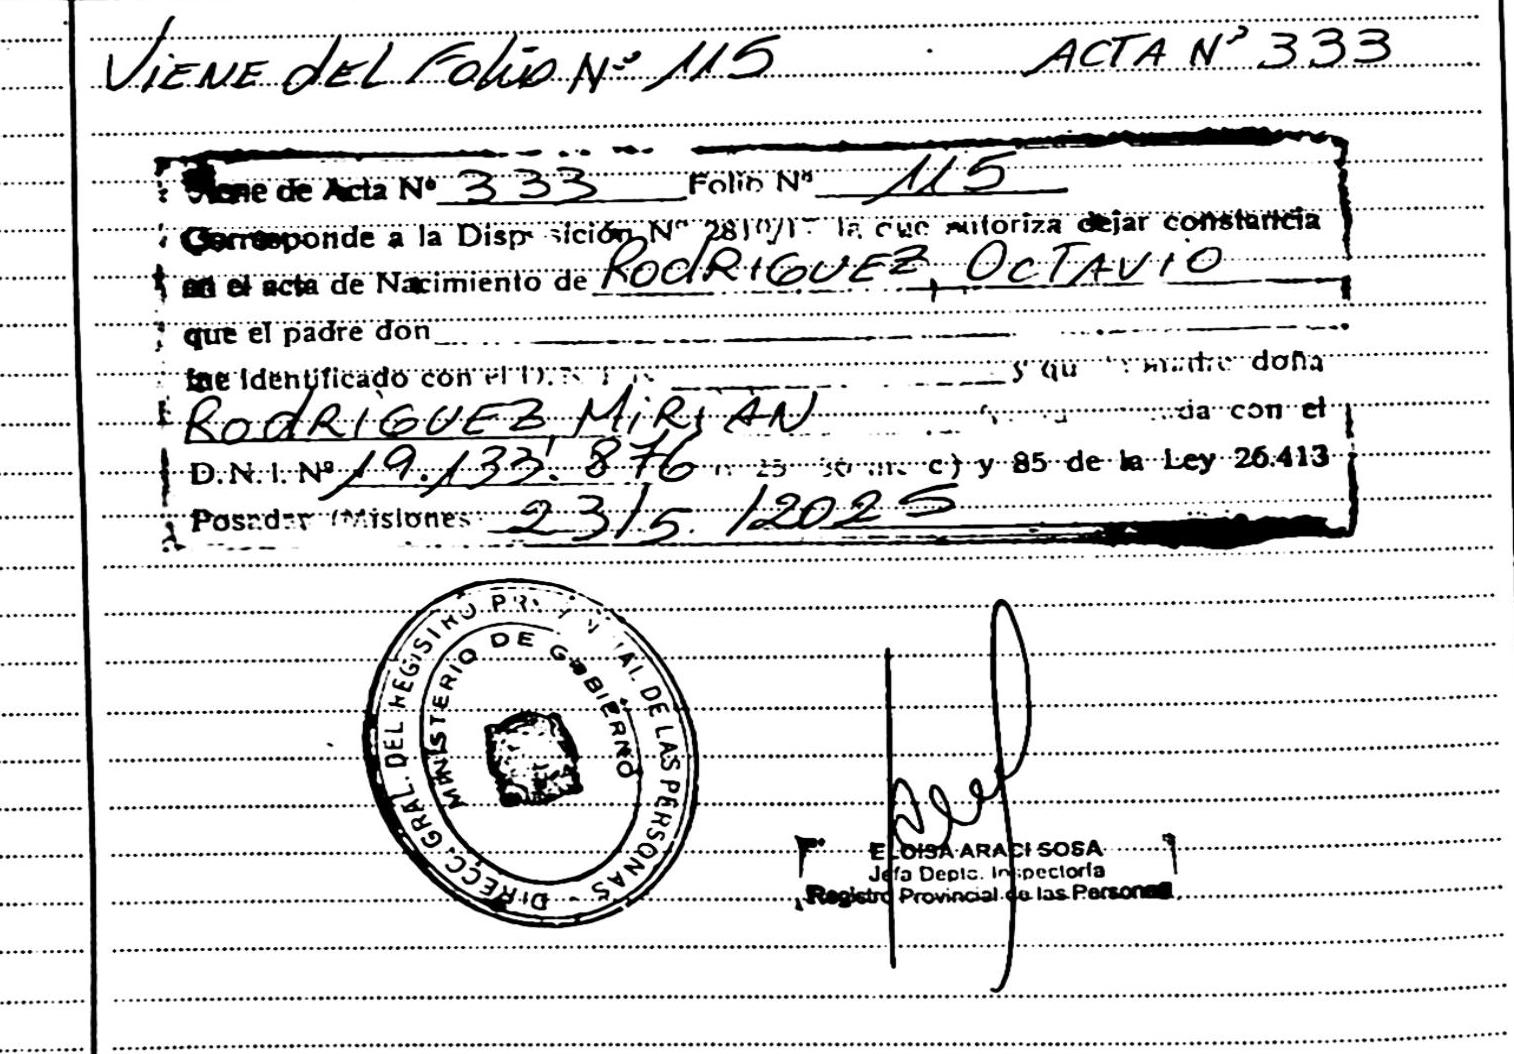 VIENE DEL FOLIO Nº 115 ACTA Nº 333
Viene de Acta Nº 333 Folio Nº 115
Corresponde a la Disposición Nº 2810/17 la que autoriza dejar constancia
en el acta de Nacimiento de RODRIGUEZ, OCTAVIO
que el padre don
fue identificado con el D.N.I. Nº y que la madre doña
RODRIGUEZ, MIRIAN da con el
D.N.I. Nº 19.133.876 c) y 85 de la Ley 26.413
Posadas (Misiones 23/5/2025
DIRECC. GRAL. DEL REGISTRO PROVINCIAL DE LAS PERSONAS -
MINISTERIO DE GOBIERNO
ELOISA ARACI SOSA
Jefa Depto. Inspectoría
Registro Provincial de las Personas